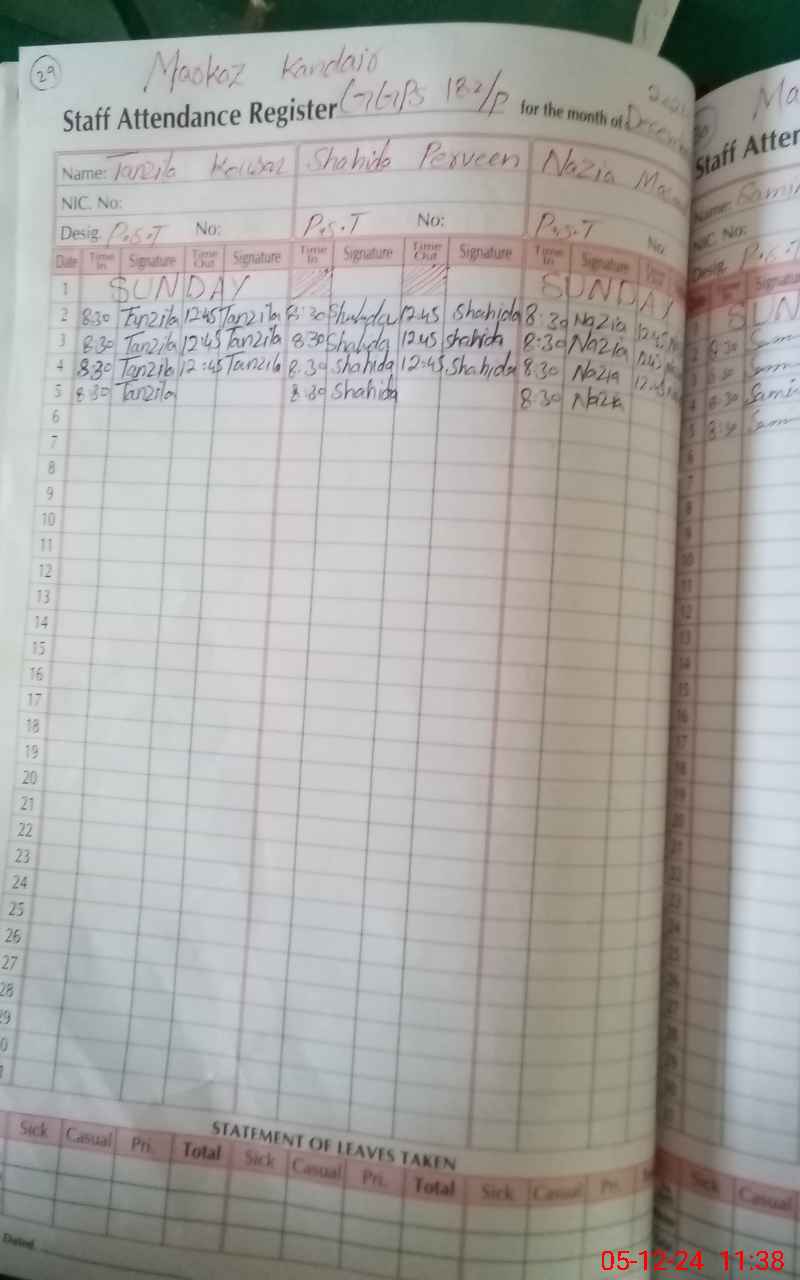 29
Markaz Kandairo
Staff Attendance Register GGPS 182/P for the month of Decem
Name: Tanzila Kousar Shahida Perveen Nazia
NIC. No:
Desig. P.S.T No: P.S.T No: P.S.T No:
Date Time In Signature Time Out Signature Time In Signature Time Out Signature Time In Signature
1 SUNDAY SUNDAY
2 8:30 Tanzila 12:45 Tanzila 8:30 Shahida 12:45 Shahida 8:30 Nazia 12:45
3 8:30 Tanzila 12:45 Tanzila 8:30 Shahida 12:45 Shahida 8:30 Nazia 12:45
4 8:30 Tanzila 12:45 Tanzila 8:30 Shahida 12:45 Shahida 8:30 Nazia 12:45
5 8:30 Tanzila 8:30 Shahida 8:30 Nazia
6
7
8
9
10
11
12
13
14
15
16
17
18
19
20
21
22
23
24
25
26
27
28
9
0
STATEMENT OF LEAVES TAKEN
Sick Casual Pri. Total Sick Casual Pri. Total Sick Casual Pri.
Dated
Ma
Staff Atten
Name: Sami
NIC. No:
Desig. P.S.T
Signatu
SUN
8:30 Sam
8:30 Sam
8:30 Sami
8:30 Sam
Sick Casual
05-12-24 11:38